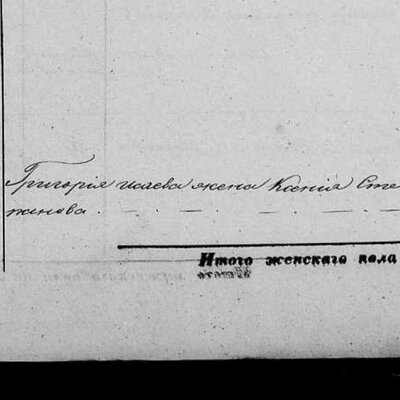 Григорія Исаева жена Ксенія Сте
панова
Итого женскаго пола